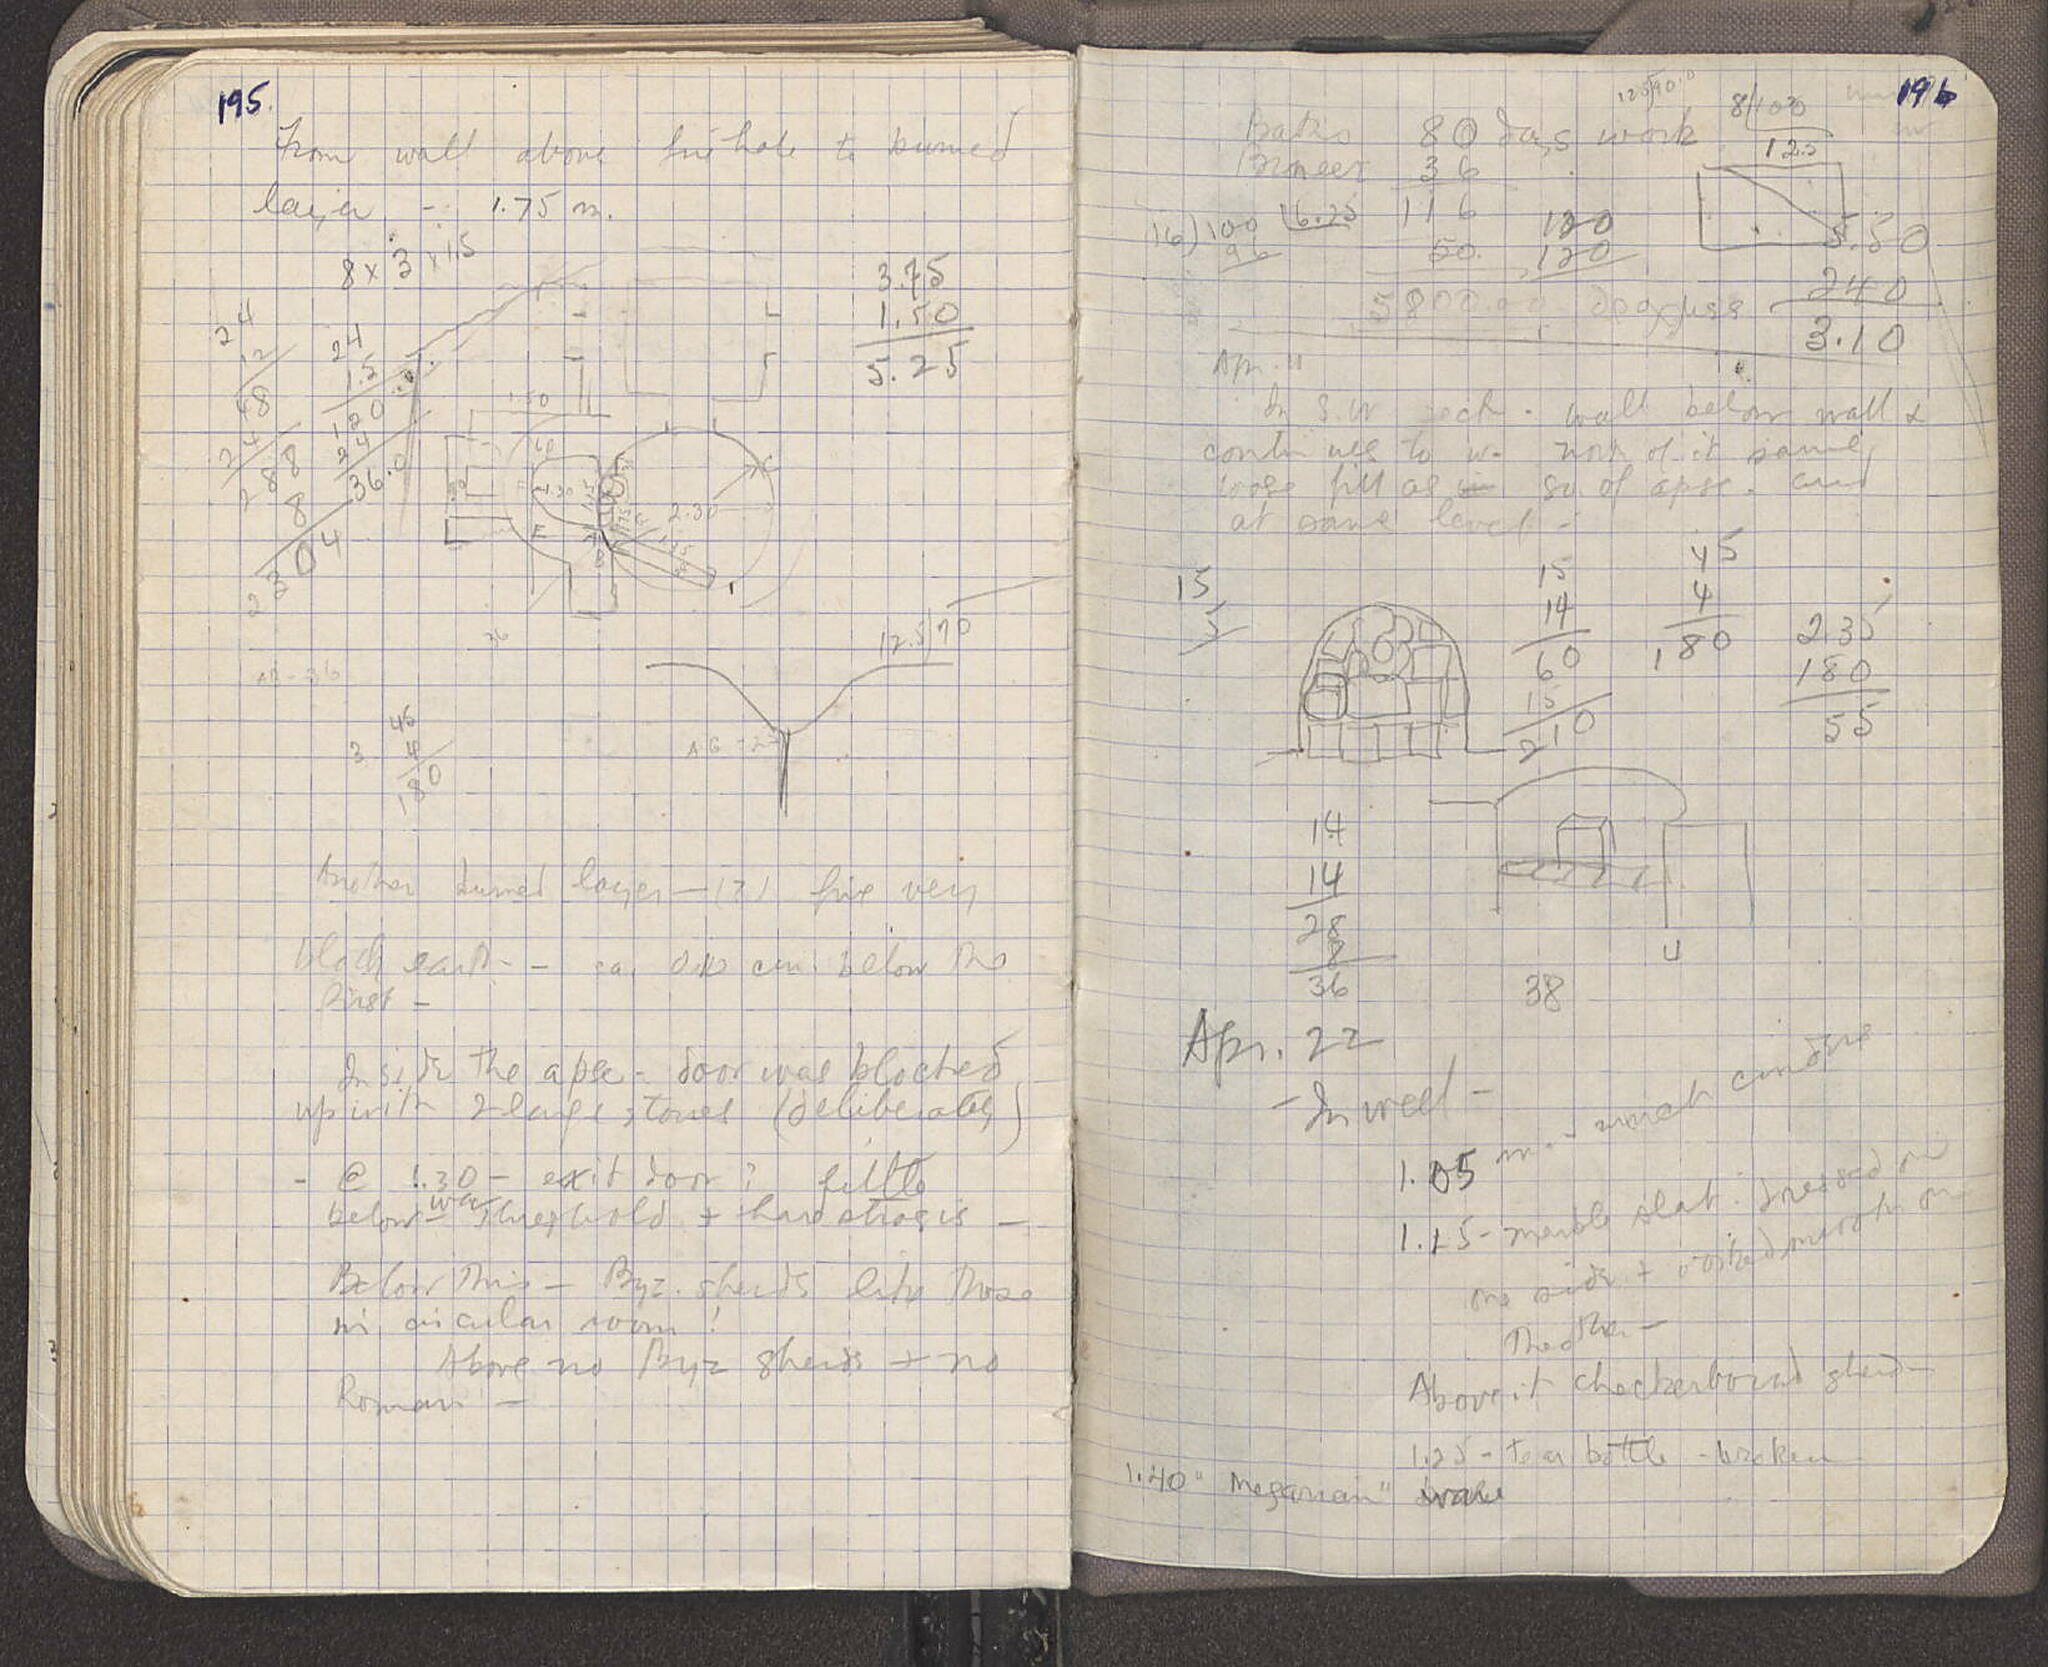 195.
From wall above fire hole to burned
layer - 1.75 m.
8 x 3 x 1.5
3.75
1.50
5.25
24
12
48
24
288
8
2304
24
1.5
120
24
36.0
1.50
60
1.30
2.30
E
12.5)70
36
AB - 36
A.G - 2
3
45
4
180
Another burned layer - (?) fire very
black earth - ca. 0.10 cm. below the
first -
Inside the apse - door was blocked
up with 2 large stones (deliberately)
- @ 1.30 - exit door? little
below was threshold + hard strosis -
Below this - Byz. sherds like those
in circular room!
Above no Byz sherds + no
Roman -
196
Baths 80 days work
Pioneer 36
116
50
5800.00
16)100 6.25
96
120
120
8/100
12.5
5.50
240
3.10
Apr. 11
In S.W. sect. wall below wall &
continues to w. north of it same
loose fill as in so. of apse. and
at same level -
15
5
15
14
60
15
210
45
4
180
235
180
55
14
14
28
8
36
38
Apr. 22
- In well -
1.05 m. - much
1.15 - marble slab: dressed on
one side + worked smooth on
the other -
Above it checkerboard sherd -
1.25 - tear bottle - broken
1.40 "Megarian" ware